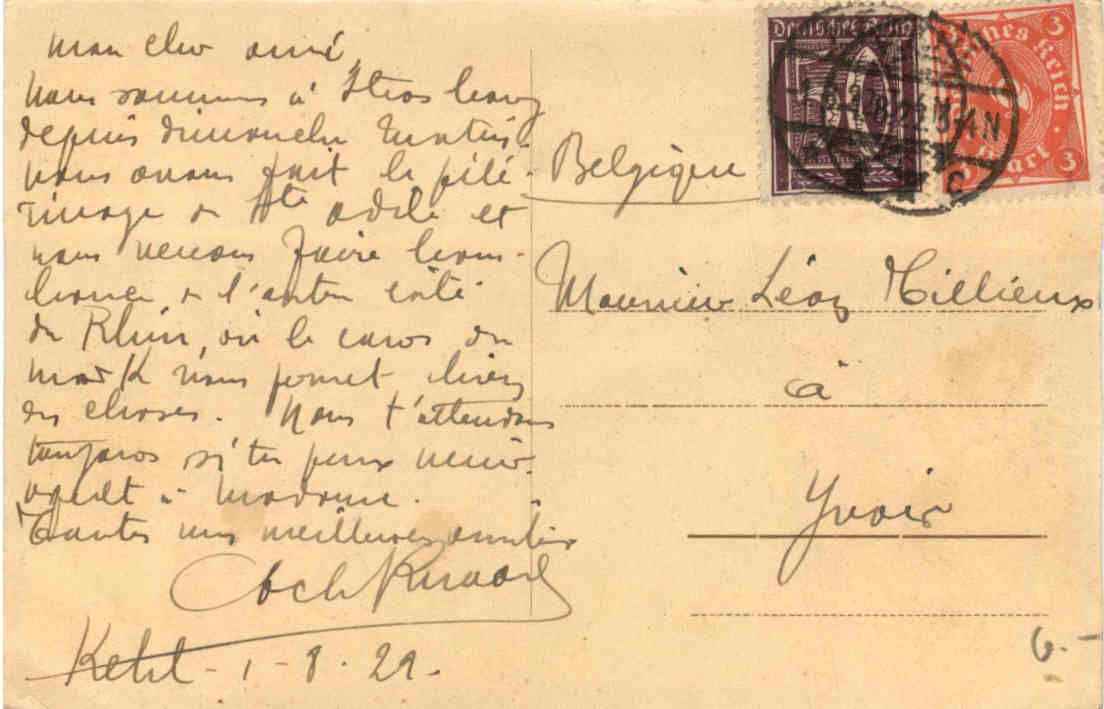 mon cher ami,
Nous sommes à Strasbourg
depuis dimanche matin.
Nous avons fait le pélé-
rinage de Ste Odile et
nous venons faire bom-
bance de l'autre côté
du Rhin, où le cours du
mark nous permet bien
des choses. Nous t'attendons
toujours si tu peux venir
à Madame.
Toutes nos meilleures amitiés
Kehl - 1 - 8 - 22.
Belgique
Monsieur Léon Tillieux
à
Yvoir
6.-
Deutsches Reich
Deutsches Reich
3
2
3
3 Mark 3
1.8.22
C